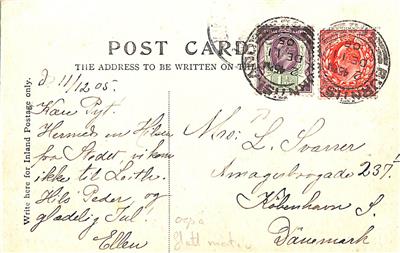 POST CARD
THE ADDRESS TO BE WRITTEN ON THE
Write here for Inland Postage only.
d. 11/12 05.
Kære
Hermed en Hilsen
fra Stedet, vi kom
ikke til Leith.
Hils Peder og
glædelig Jul!
Ellen
L.
Amagerbrogade 237
København S.
Dänemark
også